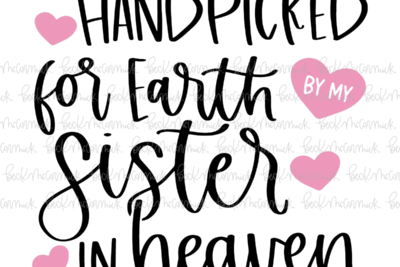 HANDPICKED
for Earth
BY MY
Sister
IN heaven